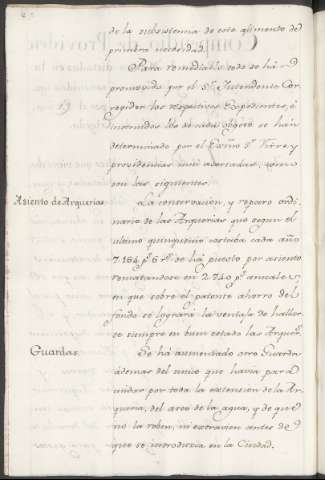 de la subsistencia de este alimento de
primera necesidad.
Para remediarlo todo se há
promovido por el Sr. Yntendente Cor-
regidor los respectivos Expedientes, é
instruidos los de cada objeto se han
determinado por el Exmo Sr. Virrey
providencias mui acertadas, como
son las siguientes.
Asiento de Arquerias
La conservacion, y reparo ordi-
nario de las Arquerias que segun el
ultimo quinquenio costaba cada año
7164 ps 6 rs. se há puesto por asiento
rematandose en 2740 ps anuales,
en que sobre el patente ahorro del
fondo se logrará la ventaja de hallar-
se siempre en buen estado las Arquers.
Guardas
Se há aumentado otro Guarda
ademas del unico que havia para
cuidar por toda la extension de la Ar-
queria, del aseo de la agua, y de que
no la roben, ni extravien antes de
que se introduzca en la Ciudad.